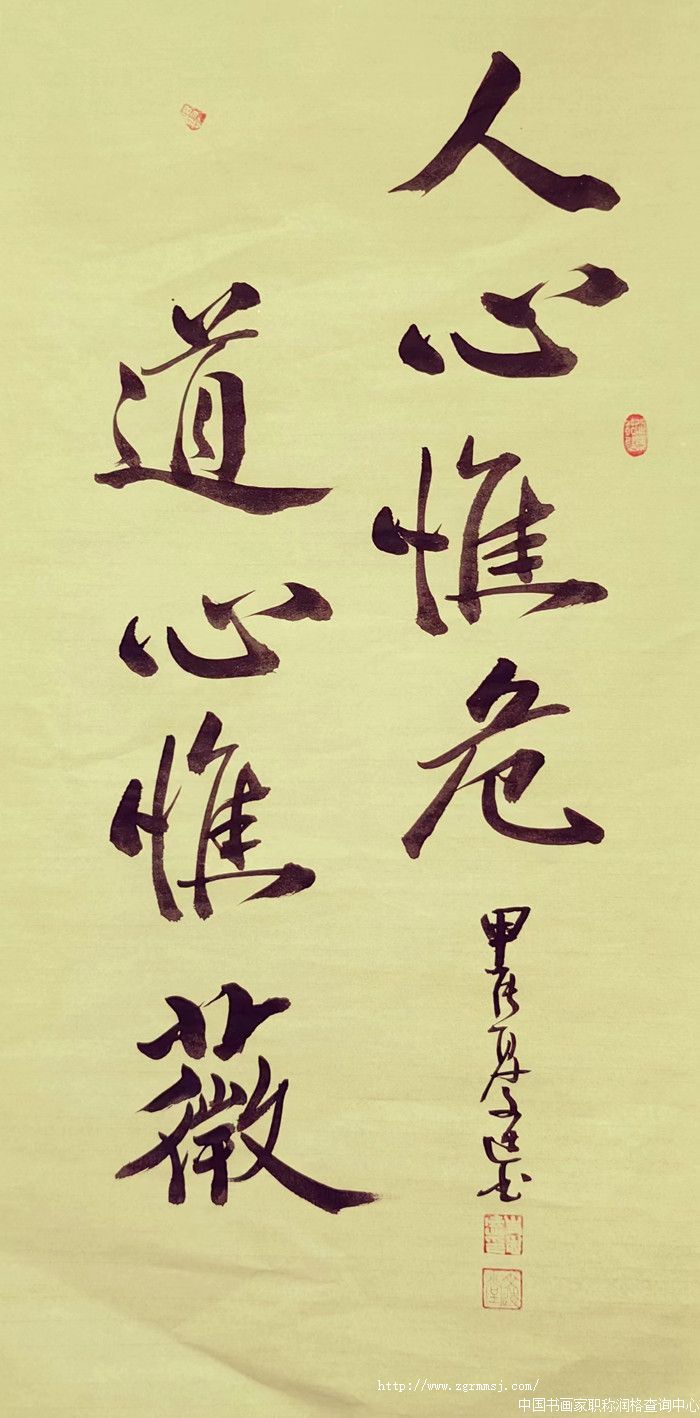 人心惟危
道心惟薇
甲辰夏文进书
http://www.zgrmmsj.com/
中国书画家职称润格查询中心